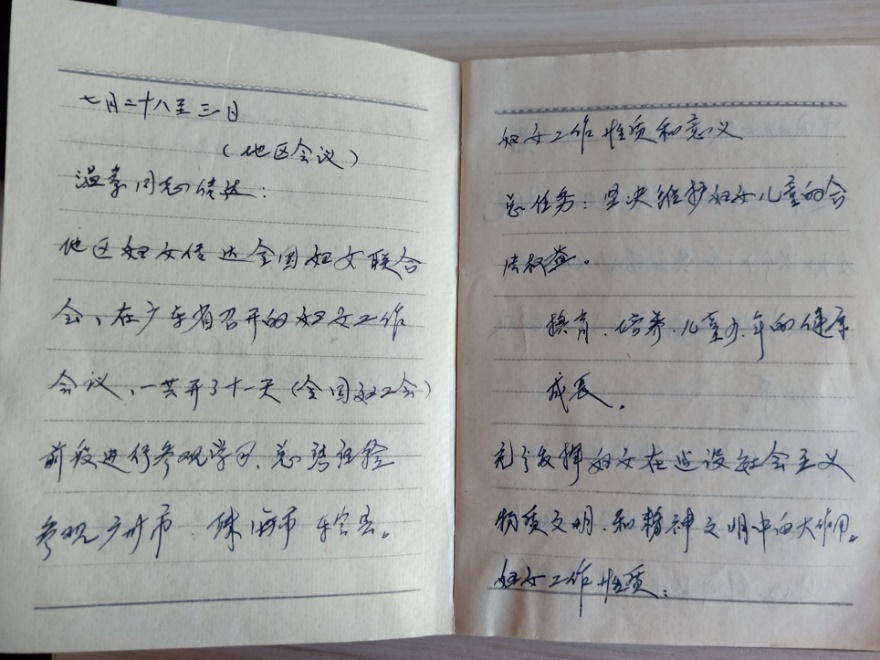 七月二十八至三日
（地区会议）
温素同志传达：
地区妇女传达全国妇女联合
会、在广东省召开的妇女工作
会议，一共开了十一天（全国妇工会）
前段进行参观学习、总结经验
参观广州市 珠海市 东官县。
妇女工作性质和意义
总任务：坚决维护妇女儿童的合
法权益。
抚育、培养、儿童少年的健康
成长。
充分发挥妇女在建设社会主义
物质文明、和精神文明中的大作用。
妇女工作性质：